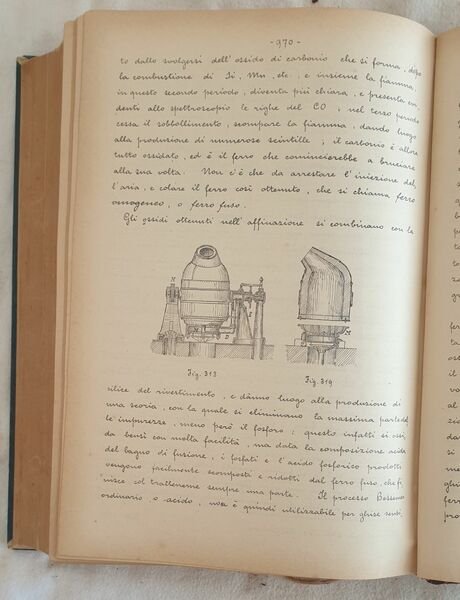 -970-
to dallo svolgersi dell'ossido di carbonio che si forma, dopo
la combustione di Si, Mn, etc., e insieme la fiamma,
in questo secondo periodo, diventa più chiara, e presenta evi
denti allo spettroscopio le righe del CO; nel terzo periodo
cessa il sobbollimento, scompare la fiamma, dando luogo
alla produzione di numerose scintille; il carbonio è allora
tutto ossidato, ed è il ferro che comincierebbe a bruciare
alla sua volta. Non c'è che da arrestare l'iniezione del,
l'aria, e colare il ferro così ottenuto, che si chiama ferro
omogeneo, o ferro fuso.
Gli ossidi ottenuti nell'affinazione si combinano con la
N
D
M
Fig. 313
Fig. 319
silice del rivestimento, e dànno luogo alla produzione di
una scoria, con la quale si eliminano la massima parte del
le impurezze, meno però il fosforo; questo infatti si ossi
da bensì con molta facilità, ma data la composizione acida
del bagno di fusione, i fosfati e l'acido fosforico prodotti
vengono facilmente scomposti e ridotti dal ferro fuso, che fi,
nisce col trattenerne sempre una parte. Il processo Bessemer
ordinario, o acido, non è quindi utilizzabile per ghise